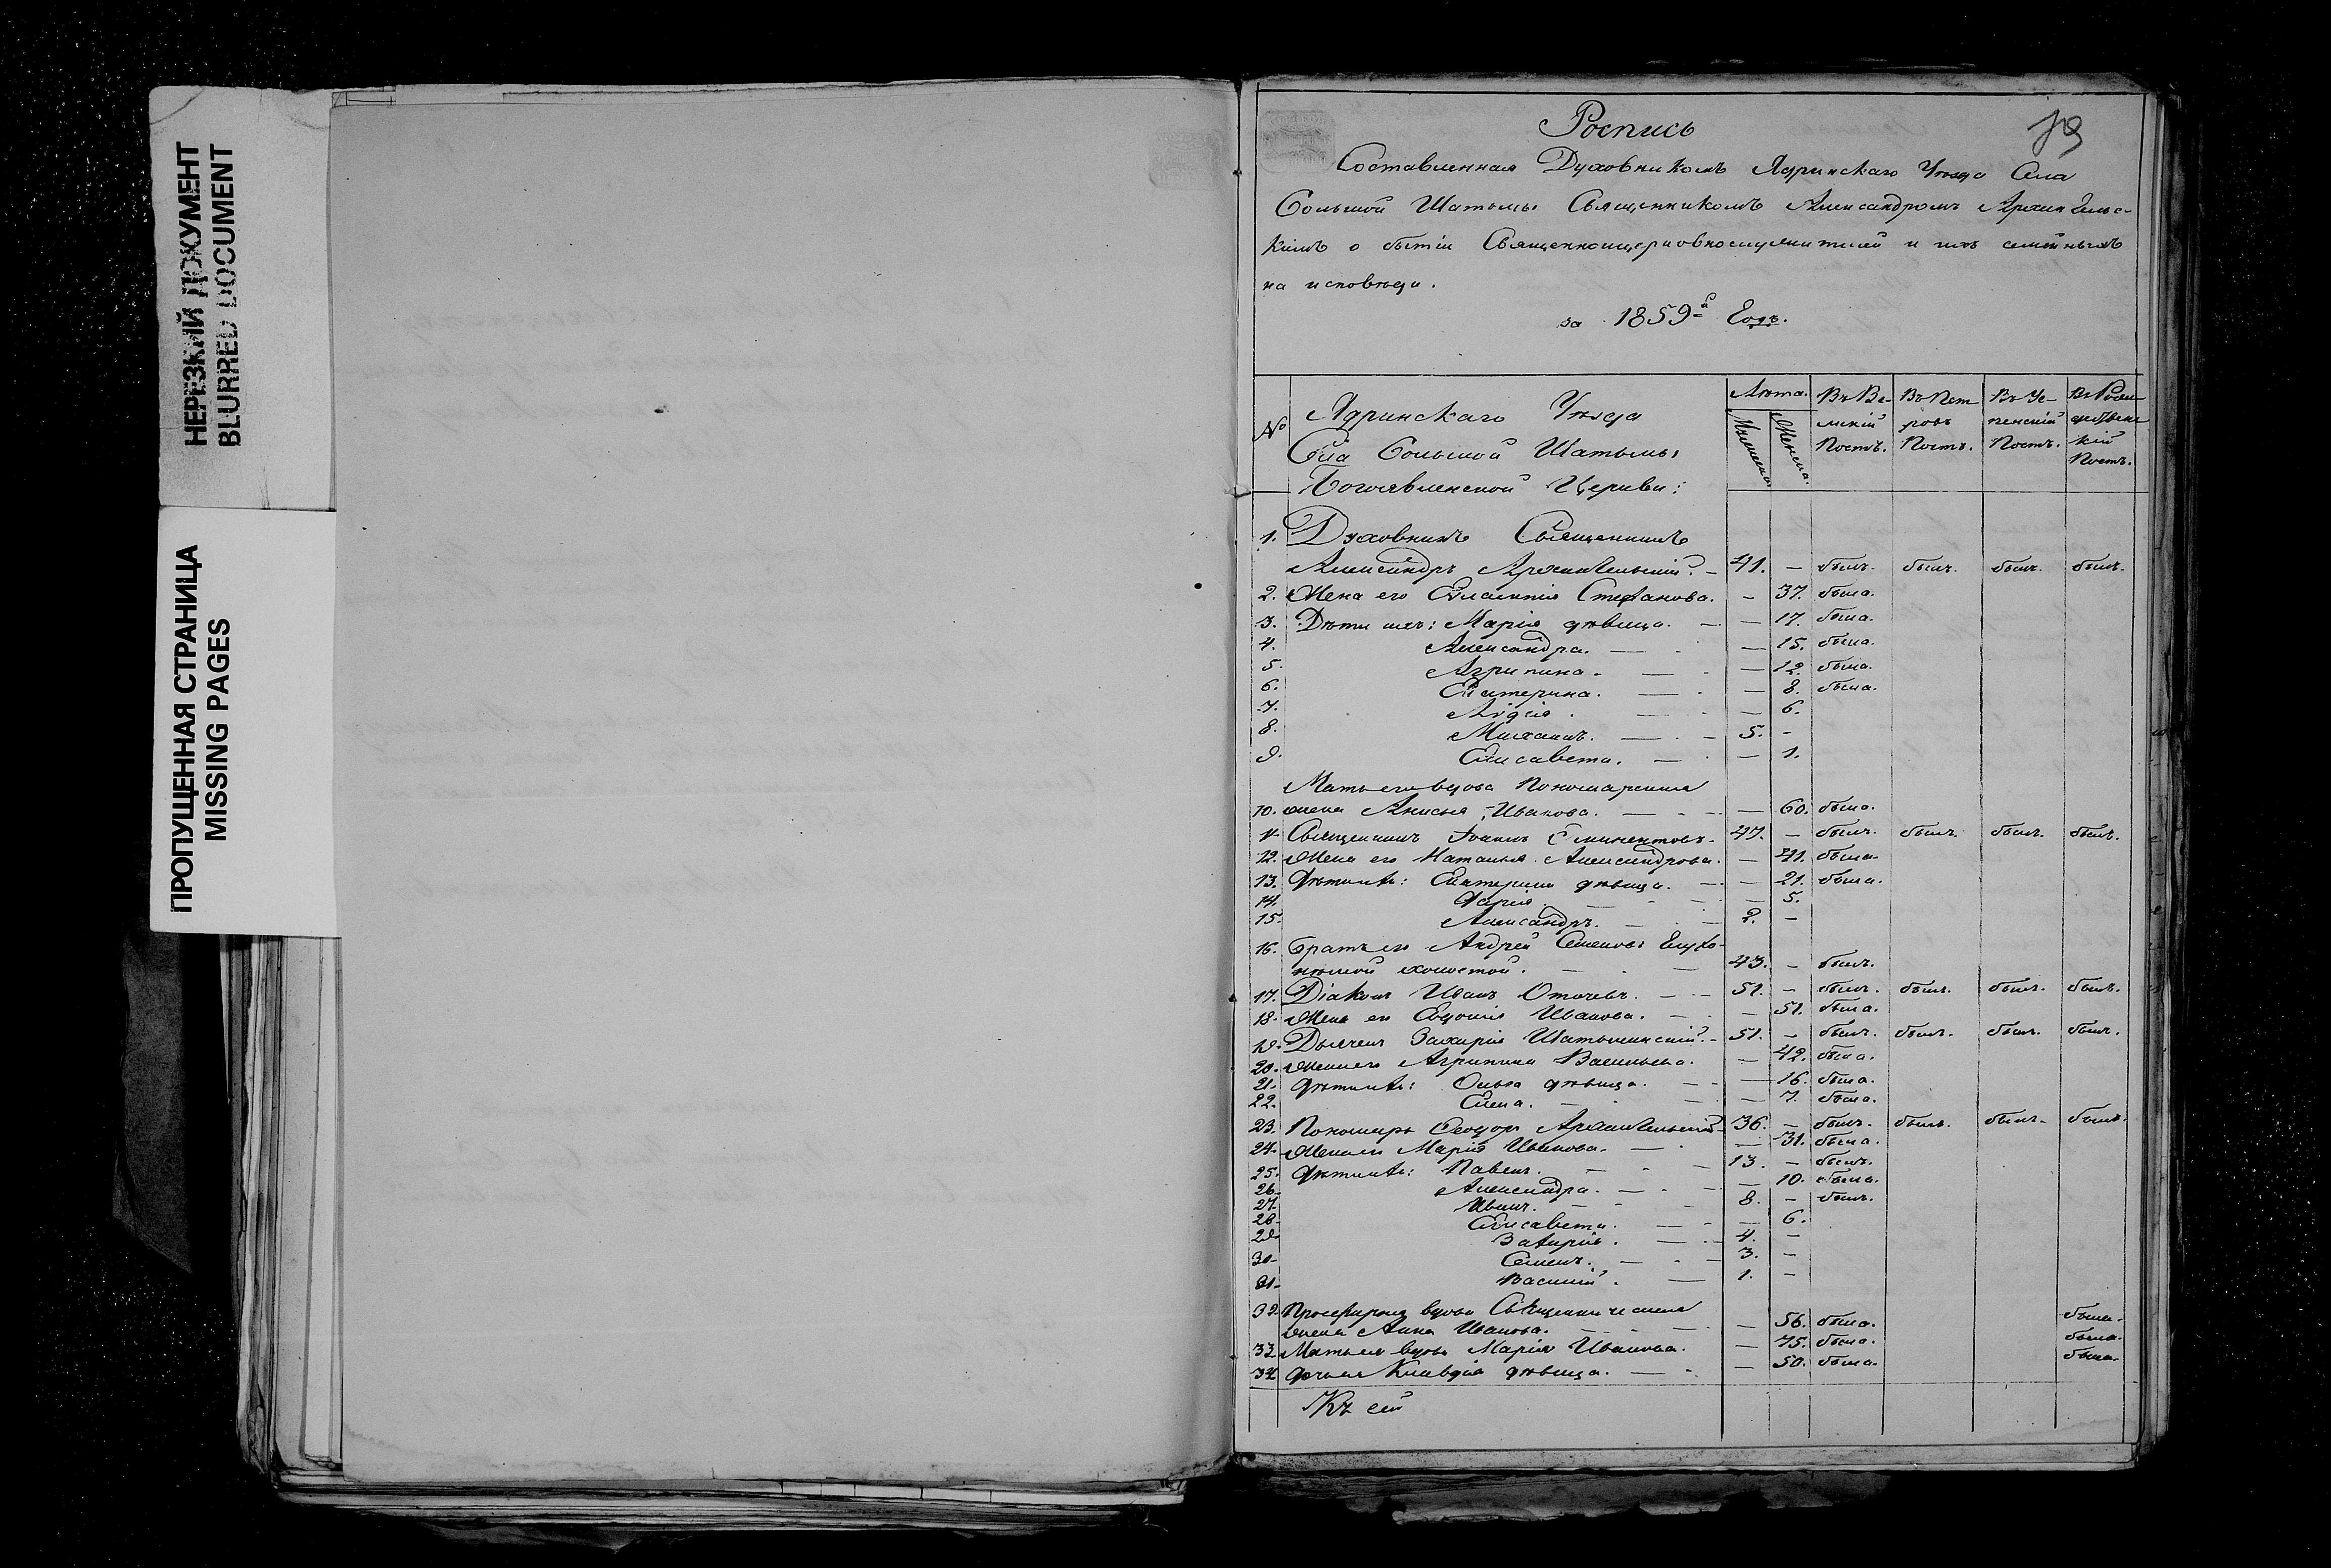 НЕРЕЗКИЙ ДОКУМЕНТ
BLURRED DOCUMENT
ПРОПУЩЕННАЯ СТРАНИЦА
MISSING PAGES
Роспись
Составленная Духовникомъ Ядринскаго Уѣзда Села
Большой Шатьмы Священникомъ Александромъ Архангельс-
кимъ о бытіи Священноцерковнослужителей и ихъ семейныхъ
на исповѣди.
за 1859й Годъ.
№ Ядринскаго Уѣзда
Села Большой Шатьмы
Богоявленской Церкви:
Лѣта. Мужеска. Женска.
Въ Ве-
ликій
Постъ.
Въ Пет
ровъ
Постъ.
Въ Ус-
пенскій
Постъ.
Въ Рож-
дественс
кій
Постъ.
1. Духовникъ Священникъ
Александръ Архангельскій. - 41. - былъ. былъ. былъ. былъ.
2. Жена его Стефанова. - 37. была.
3. Дѣти ихъ: Марія дѣвица. - 17. была.
4. Александра. - 15. была.
5. Агрипина. - 12. была.
6. Екатерина. - 8. была.
7. Лидія. - 6.
8. Михаилъ. - 5. -
9. Елисавета. - 1.
Мать его вдова Пономарская
10. жена Анисья Иванова. - 60. была.
11. Священникъ Іоаннъ - 47. - былъ. былъ. былъ. былъ.
12. Жена его Наталья Александрова. - 41. была.
13. Дѣти ихъ: Екатерина дѣвица. - 21. была.
14. Дарія. - 5.
15. Александръ. - 2. -
16. Братъ его Андрей Семеновъ Глухо-
нѣмой холостой. - 43. - былъ.
17. Діаконъ Иванъ - 51. - былъ. былъ. былъ. былъ.
18. Жена его Евдокія Иванова. - 51. была.
19. Дьячекъ Захарія Шатьминскій. - 51. - былъ. былъ. былъ. былъ.
20. Жена его Агрипина Васильева. - 42. была.
21. Дѣти ихъ: Ольга дѣвица. - 16. была.
22. Елена. - 7. была.
23. Пономарь Ѳеодоръ Архангельскій - 36. - былъ. былъ. былъ. былъ.
24. Жена его Марія Иванова. - 31. была.
25. Дѣти ихъ: Павелъ. - 13. - былъ.
26. Александра. - 10. была.
27. Иванъ. - 8. - былъ.
28. Елисавета. - 6.
29. Захарія. - 4. -
30. Семенъ. - 3. -
31. Василій. - 1. -
32. Просфирня вдова Священническая
жена Анна Иванова. - 56. была. была.
33. Мать ея вдова Марія Иванова. - 75. была. была.
34. Дочь ея Клавдія дѣвица. - 50. была. была.
Къ сей